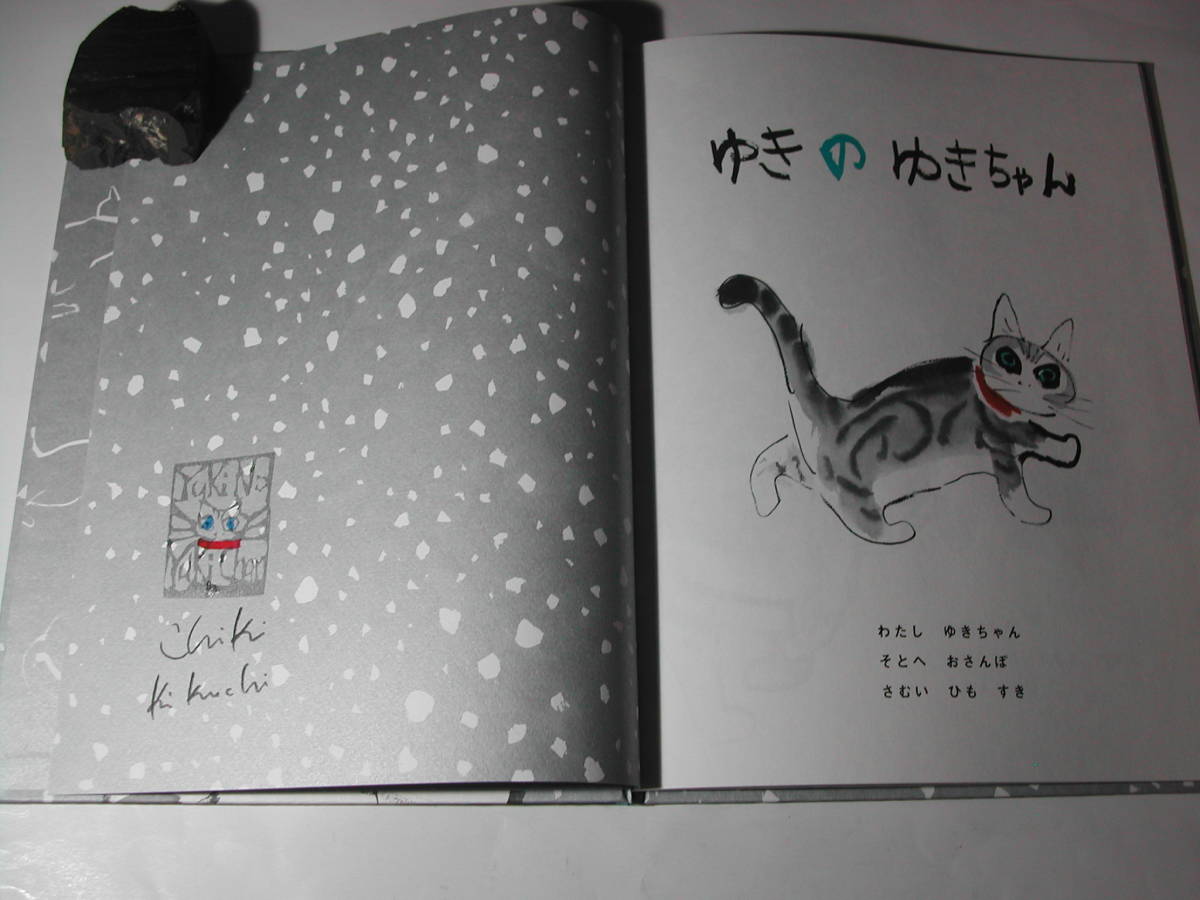 Yuki No
Yuki chan
Chiki
Kikuchi
ゆきのゆきちゃん
わたし　ゆきちゃん
そとへ　おさんぽ
さむい　ひも　すき